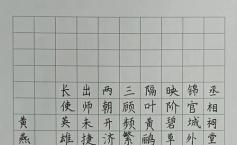 丞相祠堂
锦官城外
映阶碧草
隔叶黄鹂
三顾频繁
两朝开济
出师未捷
长使英雄
黄燕